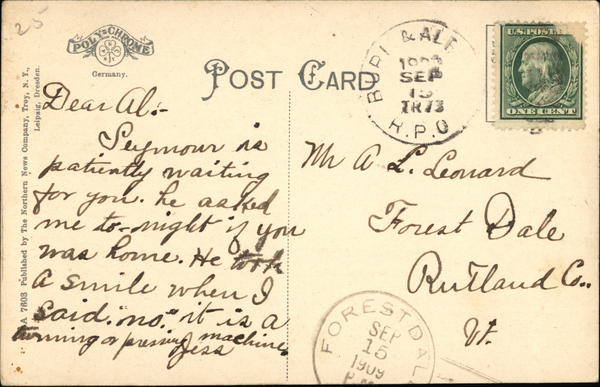 25
POLY-CHROME
Germany.
POST CARD
BURL & ALB
1909
SEP
15
TR73
R.P.O
U.S. POSTAGE
ONE CENT
A 7603 Published by The Northern News Company, Troy, N. Y.,
Leipzig, Dresden.
Dear Al:-
Seymour is
patiently waiting
for you. he asked
me to-night if you
was home. He
a smile when I
said. "no." it is a
turning or pressing machine
Jess
Mr A L. Leonard
Forest Dale
Rutland Co.,
Vt.
FORESTDAL
SEP
15
1909